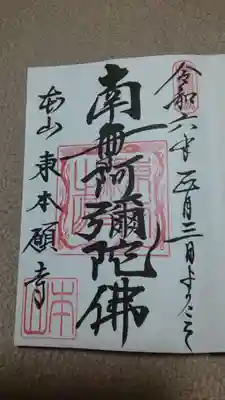 令和六年五月三日ようこそ
南無阿彌陀佛
本山東本願寺